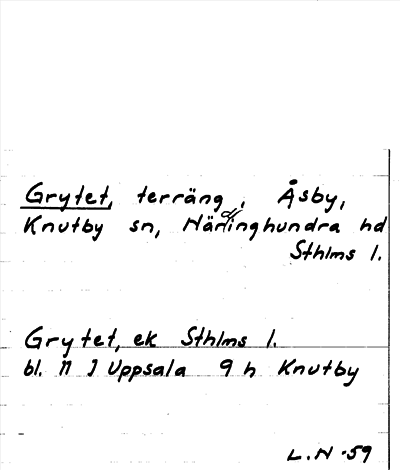 Grytet, terräng, Åsby,
Knutby sn, Närdinghundra hd
Sthlms l.
Grytet, ek Sthlms l.
bl. 11 J Uppsala 9 h Knutby
L.N -59